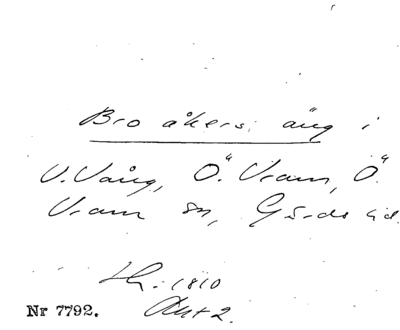 Bro åkers äng i
V. Vång, Ö. Vram, Ö.
Vram sn, Gärds hd.
1810
Akt 2.
Nr 7792.